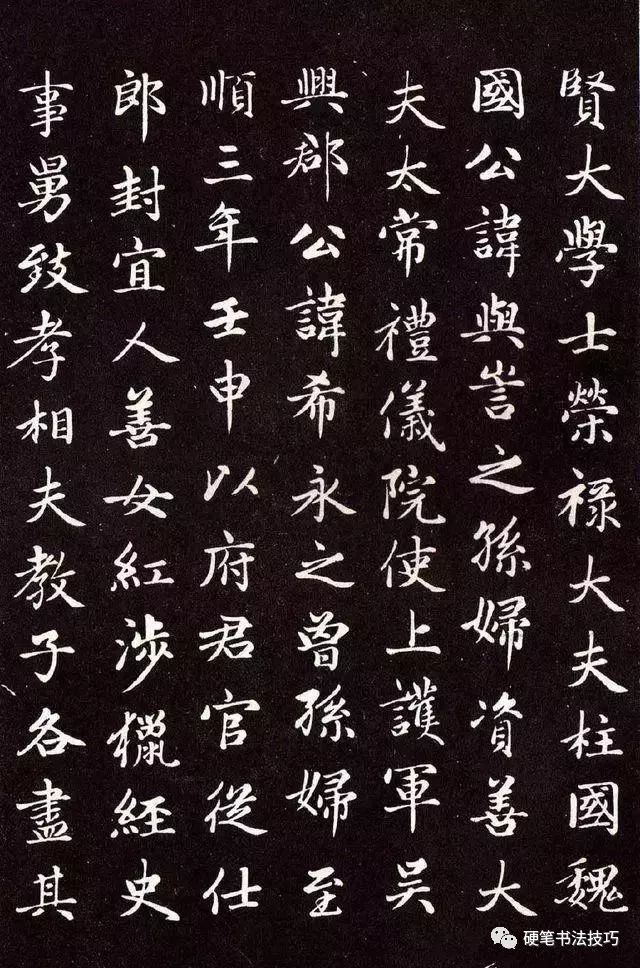 賢大學士榮祿大夫柱國魏
國公諱與訔之孫婦資善大
夫太常禮儀院使上護軍吴
興郡公諱希永之曾孫婦至
順三年壬申以府君官從仕
郎封宜人善女紅涉獵經史
事舅致孝相夫教子各盡其
硬笔书法技巧